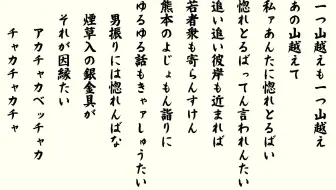 一つ山越えも一つ山越え
あの山越えて
私ァあんたに惚れとるばい
惚れとるばってん言われんたい
追い追い彼岸も近まれば
若者衆も寄らんすけん
熊本のよじょもん詣りに
ゆるゆる話もきゃァしゅうたい
男振りには惚れんばな
煙草入の銀金具が
それが因縁たい
アカチャカベッチャカ
チャカチャカチャ